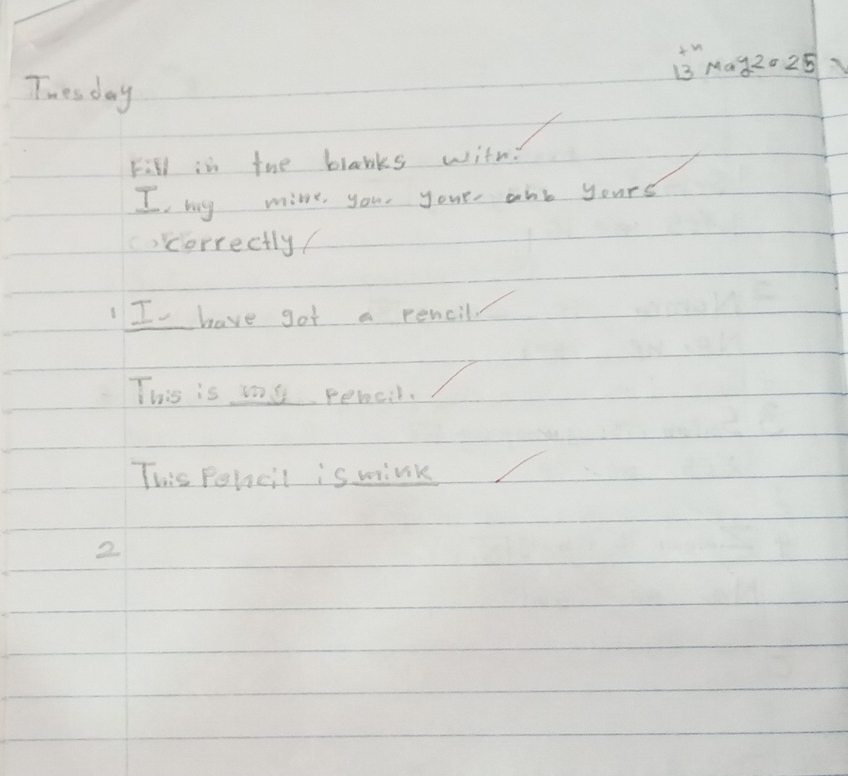 Tuesday
th
13 May 2025
Fill in tne blanks witn:
I. my mine. you. your. anb yours
correctly
1 I have got a pencil.
This is my pencil.
This Pencil is mink
2